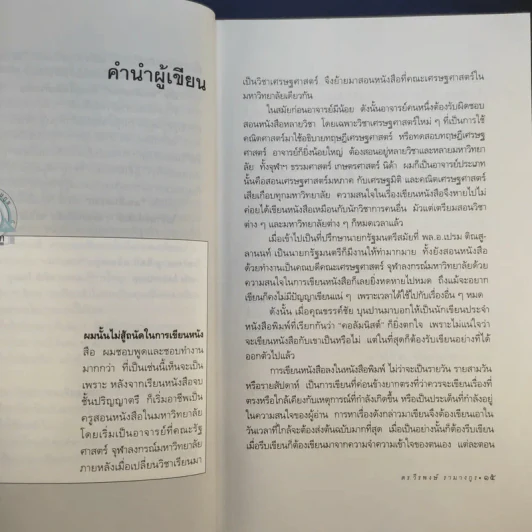 คำนำผู้เขียน
ผมนั้นไม่สู้ถนัดในการเขียนหนัง
สือ ผมชอบพูดและชอบทำงาน
มากกว่า ที่เป็นเช่นนี้เห็นจะเป็น
เพราะ หลังจากเรียนหนังสือจบ
ชั้นปริญญาตรี ก็เริ่มอาชีพเป็น
ครูสอนหนังสือในมหาวิทยาลัย
โดยเริ่มเป็นอาจารย์ที่คณะรัฐ
ศาสตร์ จุฬาลงกรณ์มหาวิทยาลัย
ภายหลังเมื่อเปลี่ยนวิชาเรียนมา
เป็นวิชาเศรษฐศาสตร์ จึงย้ายมาสอนหนังสือที่คณะเศรษฐศาสตร์ใน
มหาวิทยาลัยเดียวกัน
ในสมัยก่อนอาจารย์มีน้อย ดังนั้นอาจารย์คนหนึ่งต้องรับผิดชอบ
สอนหนังสือหลายวิชา โดยเฉพาะวิชาเศรษฐศาสตร์ใหม่ ๆ ที่เป็นการใช้
คณิตศาสตร์มาใช้อธิบายทฤษฎีเศรษฐศาสตร์ หรือทดสอบทฤษฎีเศรษฐ
ศาสตร์ อาจารย์ก็ยิ่งน้อยใหญ่ ต้องสอนอยู่หลายวิชาและหลายมหาวิทยา
ลัย ทั้งจุฬาฯ ธรรมศาสตร์ เกษตรศาสตร์ นิด้า ผมก็เป็นอาจารย์ประเภท
นั้นคือสอนเศรษฐศาสตร์มหภาค กับเศรษฐมิติ และคณิตเศรษฐศาสตร์
เสียเกือบทุกมหาวิทยาลัย ความสนใจในเรื่องเขียนหนังสือจึงหายไปไม่
ค่อยได้เขียนหนังสือเหมือนกับนักวิชาการคนอื่น มัวแต่เตรียมสอนวิชา
ต่าง ๆ และมหาวิทยาลัยต่าง ๆ ก็หมดเวลาแล้ว
เมื่อเข้าไปเป็นที่ปรึกษานายกรัฐมนตรีสมัยที่ พล.อ.เปรม ติณสู-
ลานนท์ เป็นนายกรัฐมนตรีก็มีงานให้ทำมากมาย ทั้งยังสอนหนังสือ
ด้วยทำงานเป็นคณบดีคณะเศรษฐศาสตร์ จุฬาลงกรณ์มหาวิทยาลัยด้วย
ความสนใจในการเขียนหนังสือก็เลยยิ่งหดหายไปหมด ถึงแม้จะอยาก
เขียนก็คงไม่มีปัญญาเขียนแน่ ๆ เพราะเวลาได้ใช้ไปกับเรื่องอื่น ๆ หมด
ดังนั้น เมื่อคุณขรรค์ชัย บุนปานมาบอกให้เป็นนักเขียนประจำ
หนังสือพิมพ์ที่เรียกกันว่า "คอลัมนิสต์" ก็ยิ่งตกใจ เพราะไม่แน่ใจว่า
จะเขียนหนังสือกับเขาเป็นหรือไม่ แต่ในที่สุดก็ต้องรับเขียนอย่างที่ได้
ออกตัวไปแล้ว
การเขียนหนังสือลงในหนังสือพิมพ์ ไม่ว่าจะเป็นรายวัน รายสามวัน
หรือรายสัปดาห์ เป็นการเขียนที่ค่อนข้างยากตรงที่ว่าควรจะเขียนเรื่องที่
ตรงหรือใกล้เคียงกับเหตุการณ์ที่กำลังเกิดขึ้น หรือเป็นประเด็นที่กำลังอยู่
ในความสนใจของผู้อ่าน การหาเรื่องดังกล่าวมาเขียนจึงต้องเขียนเอาใน
วันเวลาที่ใกล้จะต้องส่งต้นฉบับมากที่สุด เมื่อเป็นอย่างนั้นก็ต้องรีบเขียน
เมื่อรีบเขียนก็ต้องเขียนมาจากความจำความเข้าใจของตนเอง แต่ละตอน
ดร.วีรพงษ์ รามางกูร • ๑๕